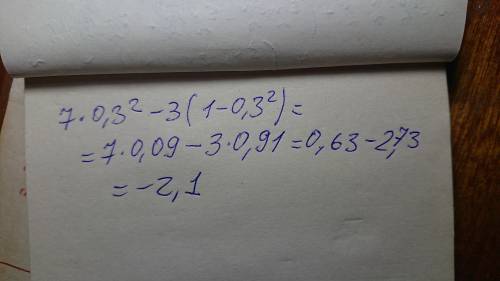 7·0,3²-3(1-0,3²)=
=7·0,09-3·0,91=0,63-2,73
=-2,1